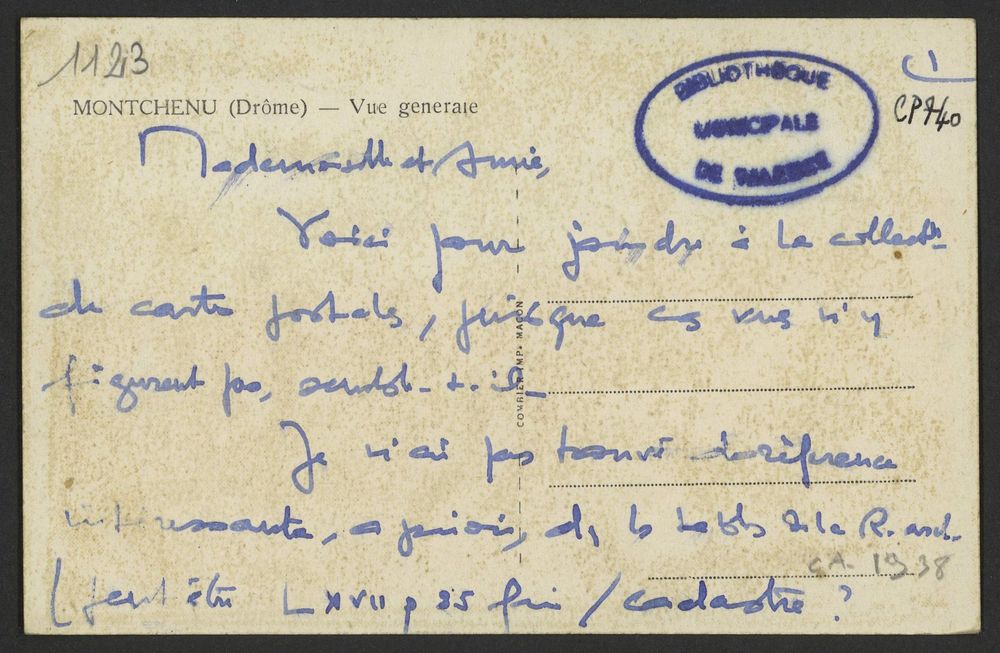 1123
MONTCHENU (Drôme) — Vue generale
BIBLIOTHÈQUE
MUNICIPALE
DE VALENCE
C 1
CP740
Mademoiselle et Amie,
Voici pour joindre à la collect-
de cartes postales, puisque ces vues n'y
figurent pas, semble-t-il_
COMBIER IMP. MACON
Je n'ai pas trouvé de référence
intéressante, a priori, ds les tables de la R. arch.
CA. 1938
(peut être LXVII p 85 fin / cadastre ?